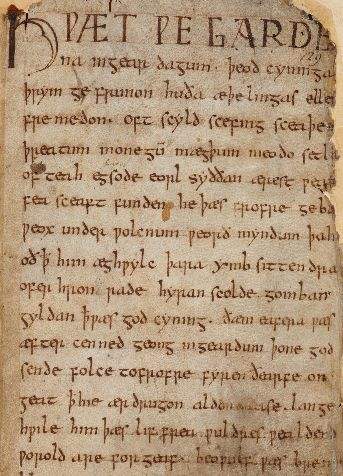 HǷÆT ǷE GARDE
na ingear dagum. þeod cyninga
þrym ge frunon huða æþelingas elle
fre medon. oft scyld scefing sceaþe
þreatum monegū mægþum meodo setl
of teah egsode eorl syððan ærest ƿea
feasceaft funden he þæs frofre geba
ƿeox under ƿolcnum ƿeorð myndum þah
oð þ him æghƿylc þara ymb sittendra
ofer hron rade hyran scolde gomban
gyldan þ ƿæs god cyning. ðæm eafera ƿæs
æfter cenned geong ingeardum þone god
sende folce tofrofre fyren ðearfe on
geat þ hie ær drugon aldor ase. lange
hƿile him þæs lif frea ƿuldres ƿealdend
ƿorold are forgeaf. beoƿulf ƿæs breme